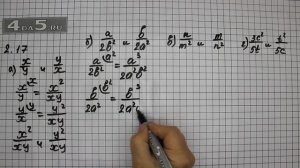 4DA5.RU
2.17
а) x/y и y/x
x/y = x²/xy
y/x = y²/xy
x²/xy и y²/xy
б) a/2b² и b/2a²
a/2b² = a³/2a²b²
b/2a² = b³/2a²
в) n/m² и m/n²
г) 3c²/5t и t²/5c